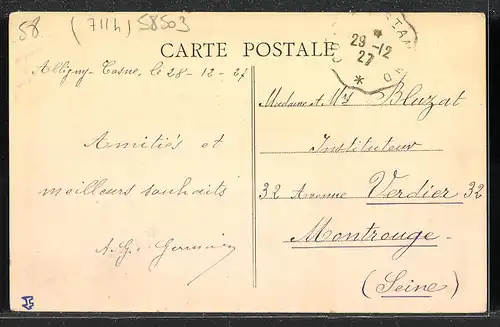 58. (711h) 58503
CARTE POSTALE
29-12
27
Alligny-Cosne, le 28-12-27
Amitiés et
meilleurs souhaits
A. G. Germain
Madame et Mr Bluzat
Instituteur
32 Avenue Verdier 32
Montrouge -
(Seine)